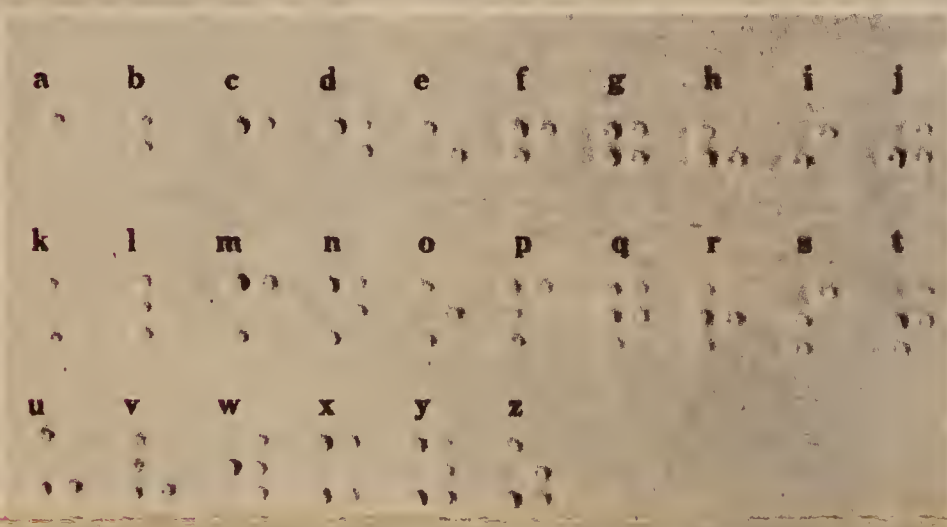 a b c d e f g h i j
⠁ ⠃ ⠉ ⠙ ⠑ ⠋ ⠛ ⠓ ⠊ ⠚
k l m n o p q r s t
⠅ ⠇ ⠍ ⠝ ⠕ ⠏ ⠟ ⠗ ⠎ ⠞
u v w x y z
⠥ ⠧ ⠺ ⠭ ⠽ ⠵